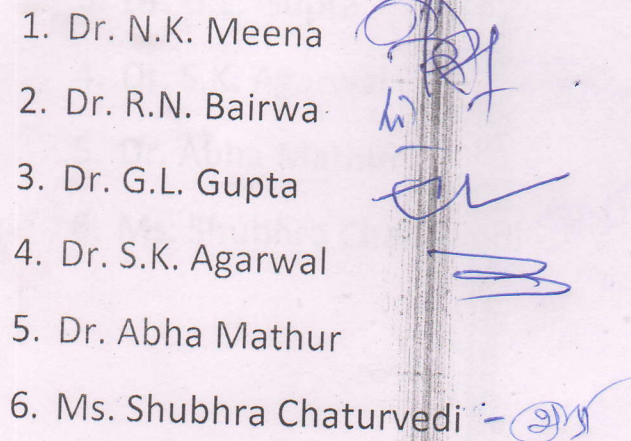 1. Dr. N.K. Meena
2. Dr. R.N. Bairwa
3. Dr. G.L. Gupta
4. Dr. S.K. Agarwal
5. Dr. Abha Mathur
6. Ms. Shubhra Chaturvedi -